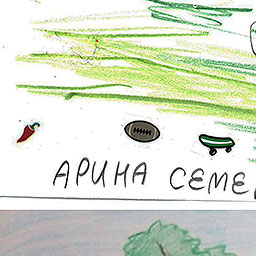 АРИНА СЕМЕ